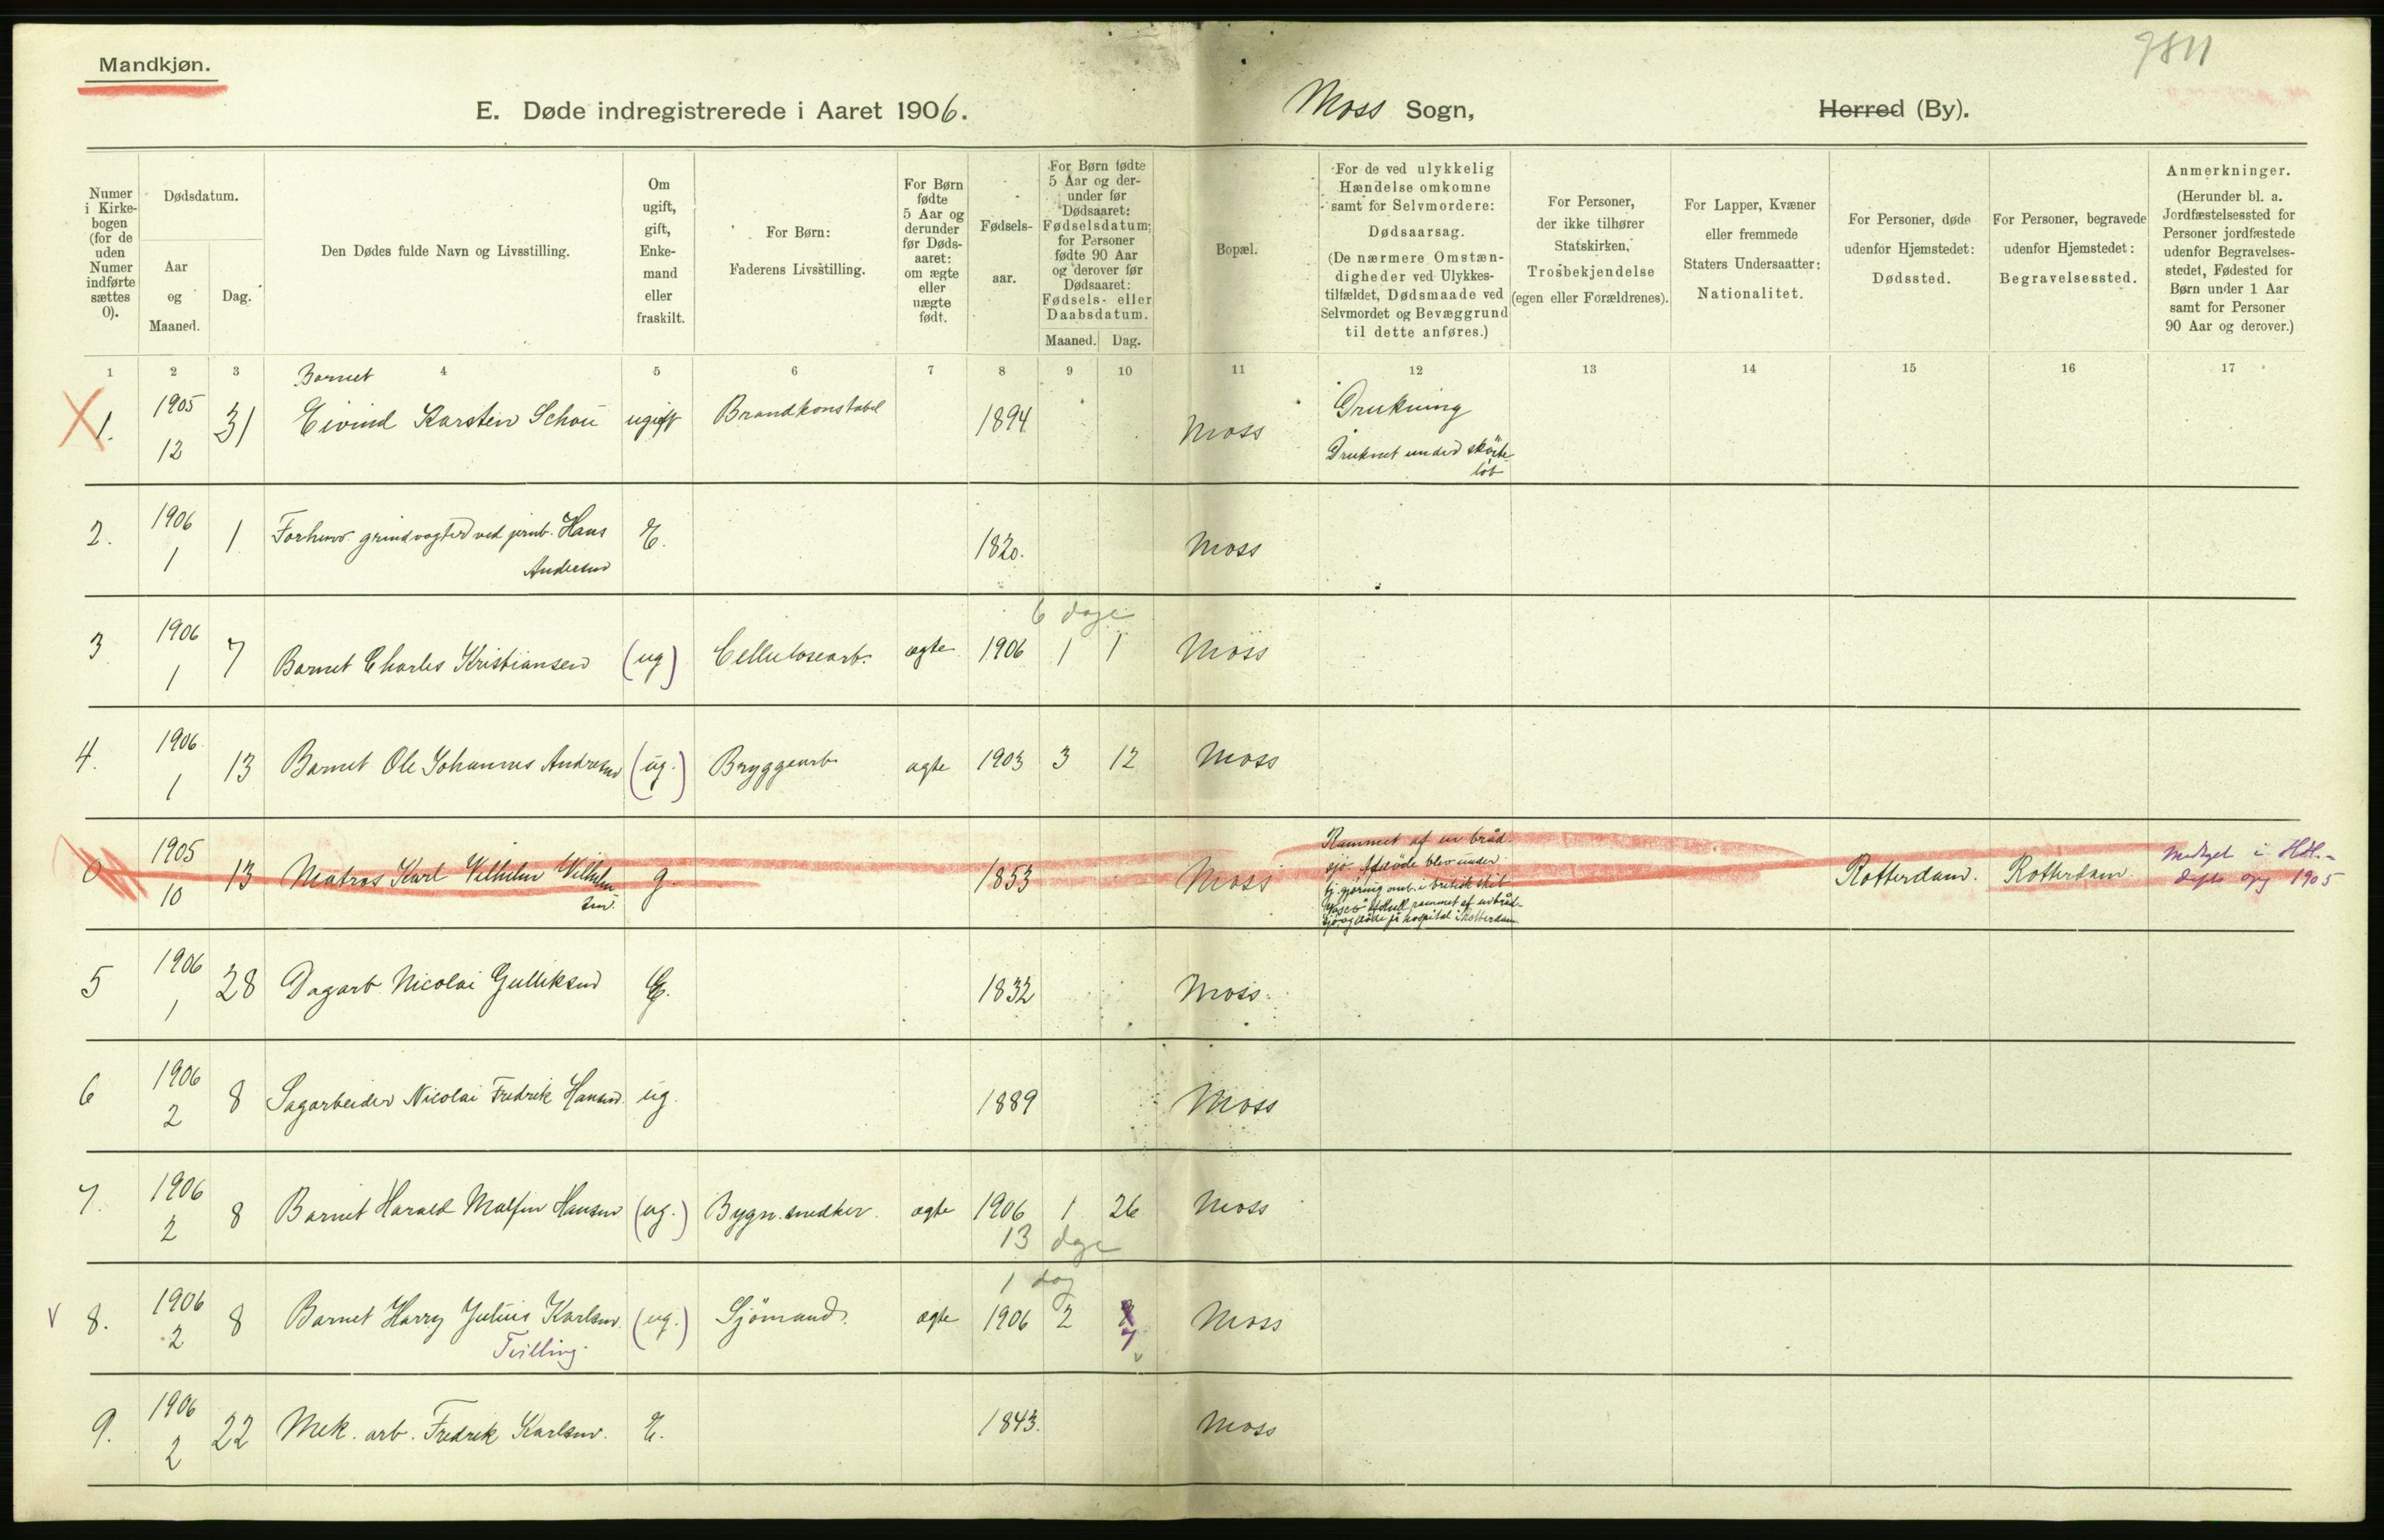 Mandkjøn.
9811
E. Døde indregistrerede i Aaret 1906.
Moss Sogn,
Herred (By).
Numer i Kirke-bogen (for de uden Numer indførte sættes 0).
Dødsdatum.
Aar og Maaned.
Dag.
Den Dødes fulde Navn og Livsstilling.
Om ugift, gift, Enke-mand eller fraskilt.
For Børn:
Faderens Livsstilling.
For Børn fødte 5 Aar og derunder før Døds-aaret: om ægte eller uægte født.
Fødsels-aar.
For Børn fødte 5 Aar og der-under før Dødsaaret: Fødselsdatum; for Personer fødte 90 Aar og derover før Dødsaaret: Fødsels- eller Daabsdatum.
Maaned. Dag.
Bopæl.
For de ved ulykkelig Hændelse omkomne samt for Selvmordere:
Dødsaarsag.
(De nærmere Omstæn-digheder ved Ulykkes-tilfældet, Dødsmaade ved Selvmordet og Bevæggrund til dette anføres.)
For Personer, der ikke tilhører Statskirken,
Trosbekjendelse
(egen eller Forældrenes).
For Lapper, Kvæner eller fremmede Staters Undersaatter:
Nationalitet.
For Personer, døde udenfor Hjemstedet:
Dødssted.
For Personer, begravede udenfor Hjemstedet:
Begravelsessted.
Anmerkninger.
(Herunder bl. a. Jordfæstelsessted for Personer jordfæstede udenfor Begravelses-stedet, Fødested for Børn under 1 Aar samt for Personer 90 Aar og derover.)
1 2 3 4 5 6 7 8 9 10 11 12 13 14 15 16 17
1. 1905 12 31 Barnet Eivind Karsten Schou ugift Brandkonstabel 1894 Moss Drukning
Druknet under skøite-løb
2. 1906 1 1 Forhenv. grindvogter ved jernb. Hans Andersen E. 1820. Moss
6 dage
3 1906 1 7 Barnet Charles Kristiansen (ug) Cellulosearb. ægte 1906 1 1 Moss
4. 1906 1 13 Barnet Ole Johannes Andresen (ug.) Bryggearb. ægte 1903 3 12 Moss
0 1905 10 13 Matros Karl Vilhelm Vilhelmsen. g. 1853 Moss Rammet af en bråd-sjø. Afdøde blev under
rammet af en bråd-sjø og døde på hospital i Rotterdam. Rotterdam. Rotterdam. 1905
5 1906 1 28 Dagarb. Nicolai Gulliksen E. 1832 Moss.
6 1906 2 8 Sagarbeider Nicolai Fredrik Hansen. ug. 1889 Moss
7. 1906 2 8 Barnet Harald Malfin Hansen (ug.) Bygn.snedker. ægte 1906 1 26 Moss
13 dage
1 dag
8. 1906 2 8 Barnet Harry Julius Karlsen. (ug.) Sjømand. ægte 1906 2 7 Moss
Tvilling.
9. 1906 2 22 Mek. arb. Fredrik Karlsen. E. 1843. Moss